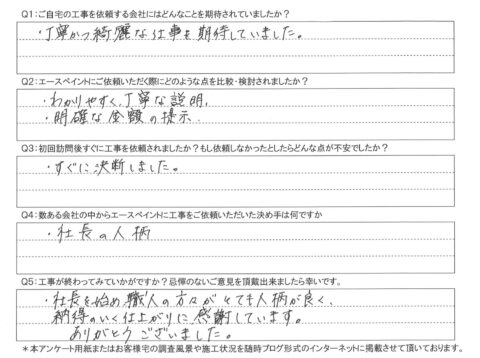 Q1：ご自宅の工事を依頼する会社にはどんなことを期待されていましたか？
・丁寧かつ綺麗な仕事を期待していました。
Q2：エースペイントにご依頼いただく際にどのような点を比較・検討されましたか？
・わかりやすく、丁寧な説明、
・明確な金額の提示、
Q3：初回訪問後すぐに工事を依頼されましたか？もし依頼しなかったとしたらどんな点が不安でしたか？
・すぐに決断しました。
Q4：数ある会社の中からエースペイントに工事をご依頼いただいた決め手は何ですか
・社長の人柄
Q5：工事が終わってみていかがですか？忌憚のないご意見を頂戴出来ましたら幸いです。
・社長を始め職人の方々がとても人柄が良く、
納得のいく仕上がりに感謝しています。
ありがとうございました。
＊本アンケート用紙またはお客様宅の調査風景や施工状況を随時ブログ形式のインターネットに掲載させて頂いております。